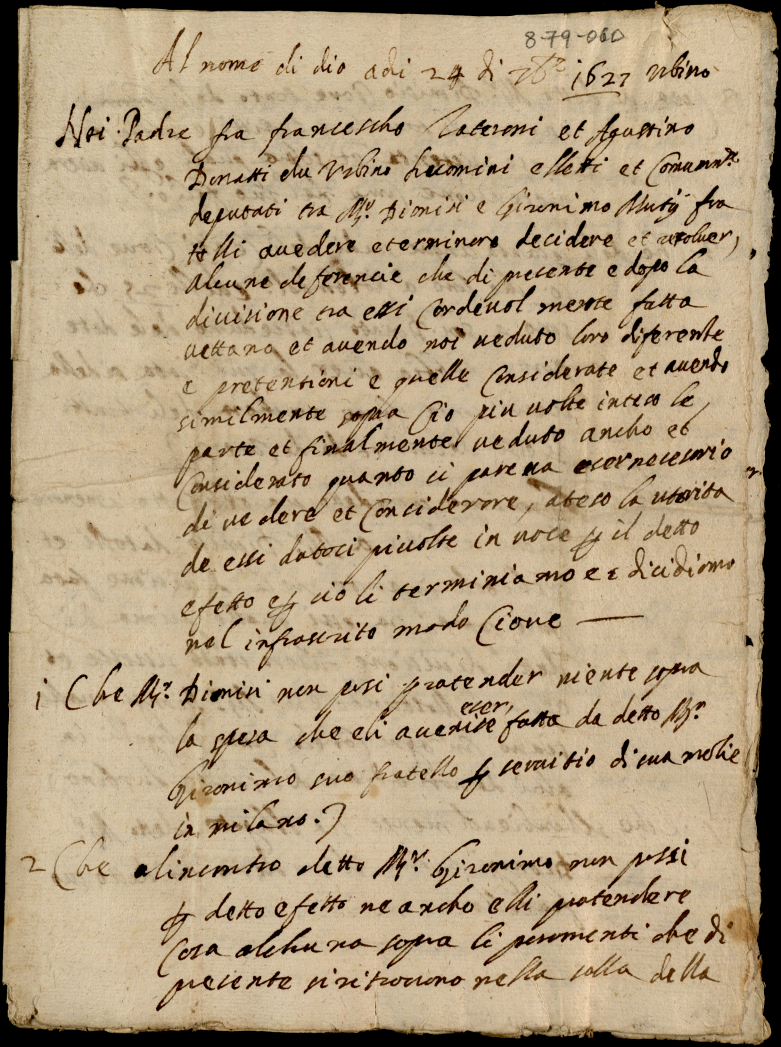 8-79-010
Al nome di dio adi 24 di 7bre 1627 urbino
Noi Padre fra francescho et Agustino
Donatti da Urbino huomini elletti et Comunmte
deputati tra Mr. Dionisi e Gironimo Mutij fra
telli avedere eterminare decidere et resolver,
alcune deferencie che di presente e dopo la
divisione tra essi Cordevol mente fatta
vettano et avendo noi veduto loro diferente
e pretentioni e quelle Considerate et avendo
similmente sopra Cio piu volte inteso le
parte et finalmente veduto ancho et
Considerato quanto ci pareva esernecesario
di vedere et Considerare, ateso la utorita
de essi datoci pivolte in voce p il detto
efetto e p ciò li terminiamo e e dicidiamo
nel infrascrito modo Cioue —
1 Che Mr. Dionisi non posi pratender niente sopra
la spesa che eli averise eser, fatta da detto Mr.
Gironimo suo fratello p servitio di sua molie
in milano.)
2 Che alincontro detto Mr. Gironimo non possi
p detto efetto ne ancho elli pratendere
Cosa alchuna sopra li paramenti che di
presente siritrovano nella salla della